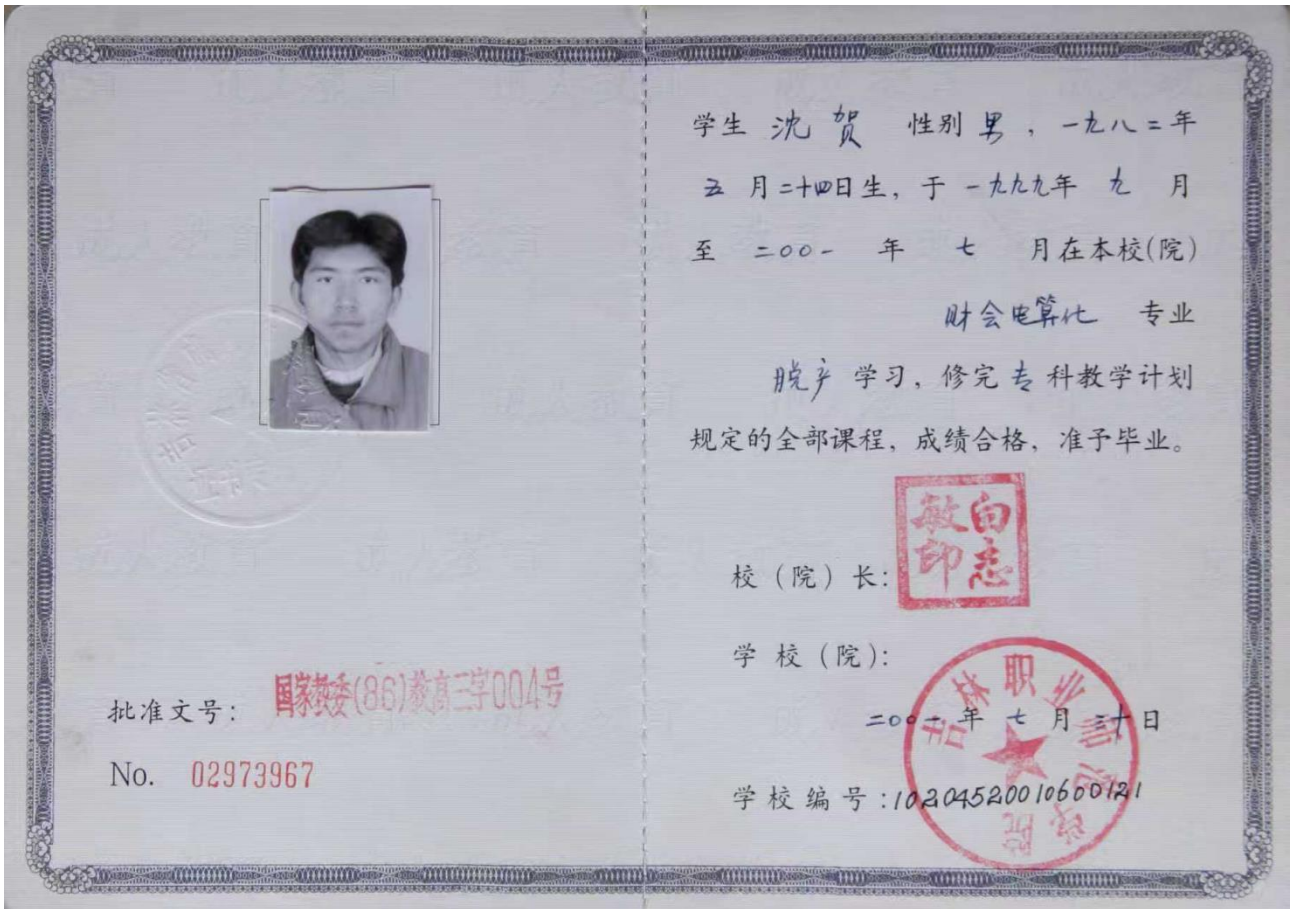 批准文号: 国家教委(86)教高三字004号
No. 02973967
学生 沈贺 性别 男 , 一九八二年
五 月二十四日生, 于 一九九九年 九 月
至 二00一 年 七 月在本校(院)
财会电算化 专业
脱产 学习, 修完 专 科教学计划
规定的全部课程, 成绩合格, 准予毕业。
校 (院) 长: 白志敏印
学 校 (院): 吉林职业师范学院
二00一 年 七 月 三十 日
学校编号: 10204520010600121